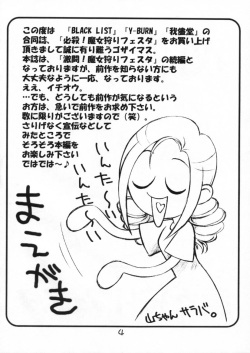 この度は「BLACK LIST」「Y-BURN」「我儘堂」の
合同誌、「必殺!魔女狩りフェスタ」をお買い上げ
頂きまして誠に有り難うゴザイマス。
本誌は、「激闘!魔女狩りフェスタ」の続編と
なっておりますが、前作を知らない方にも
大丈夫なように一応、なっております。
ええ、イチオウ。
…でも、どうしても前作が気になるという
お方は、急いで前作をお求め下さい。
数に限りがございますので(笑)。
さりげなく宣伝などして
みたところで
そろそろ本編を
お楽しみ下さい
ではでは〜♪
いんたー
いんたー
まえがき
山ちゃん サラバ。
4